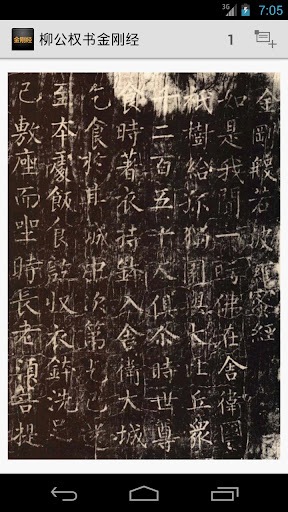 3G 7:05
金刚经 柳公权书金刚经 1
金剛般若波羅蜜經
如是我聞一時佛在舍衛國
祇樹給孤獨園與大比丘眾
千二百五十人俱尒時世尊
食時著衣持鉢入舍衛大城
乞食於其城中次第乞已還
至本處飯食訖收衣鉢洗足
已敷座而坐時長老須菩提